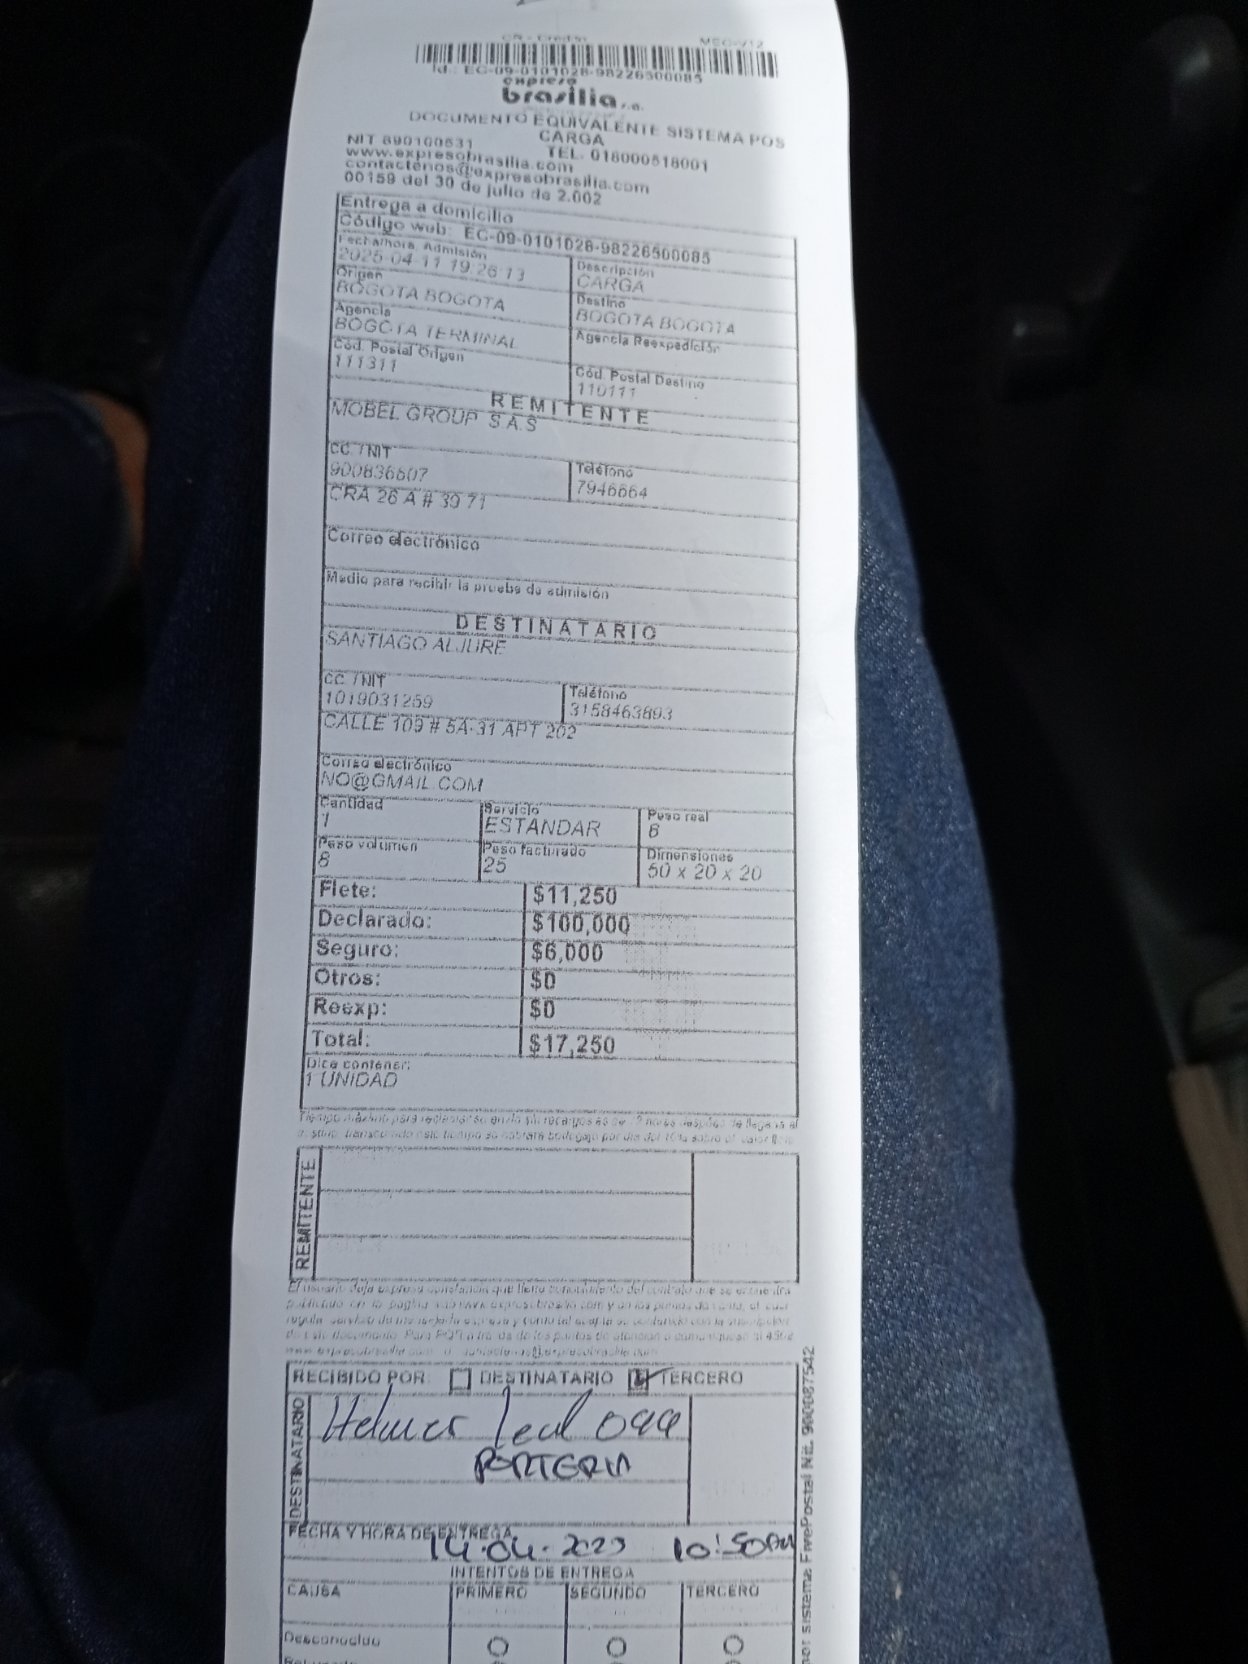 Id.: EG-09-0101028-98226500085
expreso
brasilia s.a.
DOCUMENTO EQUIVALENTE SISTEMA POS
CARGA
NIT 890100531 TEL. 018000518001
www.expresobrasilia.com
contactenos@expresobrasilia.com
00159 del 30 de julio de 2.002
Entrega a domicilio
Código web: EG-09-0101028-98226500085
Fecha/hora Admisión Descripción
2025-04-11 19:26:13 CARGA
Origen Destino
BOGOTA BOGOTA BOGOTA BOGOTA
Agencia Agencia Reexpedición
BOGOTA TERMINAL
Cód. Postal Origen Cód. Postal Destino
111311 110111
REMITENTE
MOBEL GROUP S.A.S
CC / NIT Teléfono
900836607 7946664
CRA 26 A # 39 71
Correo electrónico
Medio para recibir la prueba de admisión
DESTINATARIO
SANTIAGO ALJURE
CC / NIT Teléfono
1019031259 3158463893
CALLE 109 # 5A-31 APT 202
Correo electrónico
NO@GMAIL.COM
Cantidad Servicio Peso real
1 ESTANDAR 8
Peso volumen Peso facturado Dimensiones
8 25 50 x 20 x 20
Flete: $11,250
Declarado: $100,000
Seguro: $6,000
Otros: $0
Reexp: $0
Total: $17,250
Dice contener:
1 UNIDAD
REMITENTE
RECIBIDO POR: DESTINATARIO TERCERO
DESTINATARIO
Leal
PORTERIA
FECHA Y HORA DE ENTREGA
14.04.2025 10:50AM
INTENTOS DE ENTREGA
CAUSA PRIMERO SEGUNDO TERCERO
Desconocido
por sistema FivePostal Nit. 900087542